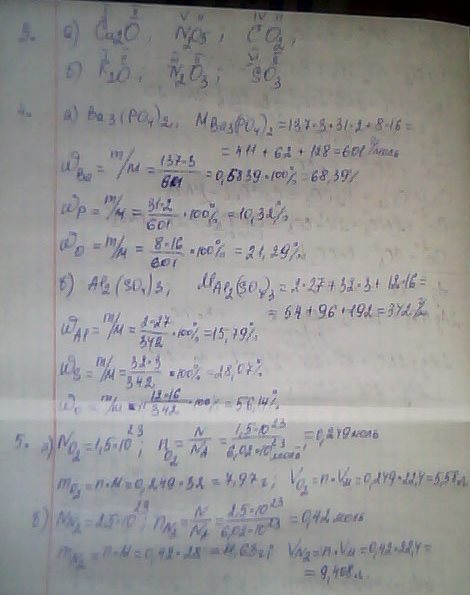 3. а) Cu₂O, N₂O₅, CO₂,
б) K₂O, N₂O₃, SO₃
4. а) Ba₃(PO₄)₂, M Ba₃(PO₄)₂ = 137·3+31·2+8·16=
= 411 + 62 + 128 = 601 г/моль
ωBa = m/M = 137·3/601 = 0,6839·100% = 68,39%
ωP = m/M = 31·2/601 · 100% = 10,32%
ωO = m/M = 8·16/601 · 100% = 21,29%
б) Al₂(SO₄)₃, M Al₂(SO₄)₃ = 2·27+32·3+12·16=
= 54 + 96 + 192 = 342
ωAl = m/M = 2·27/342 · 100% = 15,79%
ωS = m/M = 32·3/342 · 100% = 28,07%
ωO = m/M = 12·16/342 · 100% = 56,14%
5. а) N O₂ = 1,5·10²³; n O₂ = N/NA = 1,5·10²³/6,02·10²³ моль⁻¹ = 0,249 моль
m O₂ = n·M = 0,249·32 = 7,97 г; V O₂ = n·Vм = 0,249·22,4 = 5,58 л
б) N N₂ = 2,5·10²³; n N₂ = N/NA = 2,5·10²³/6,02·10²³ = 0,42 моль
m N₂ = n·M = 0,42·28 = 11,63 г; V N₂ = n·Vм = 0,42·22,4 =
= 9,408 л.